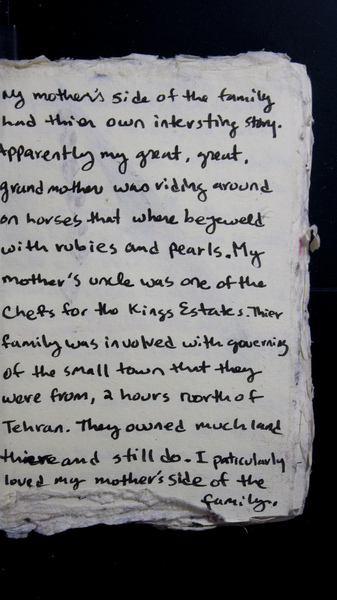 My mother's side of the family
had thier own intersting story.
Apparently my great, great,
grand mother was riding around
on horses that where bejeweld
with rubies and pearls. My
mother's uncle was one of the
Chefs for the Kings Estates. Thier
family was involved with governing
of the small town that they
were from, 2 hours north of
Tehran. They owned much land
thiere and still do. I paticularly
loved my mother's side of the
family.